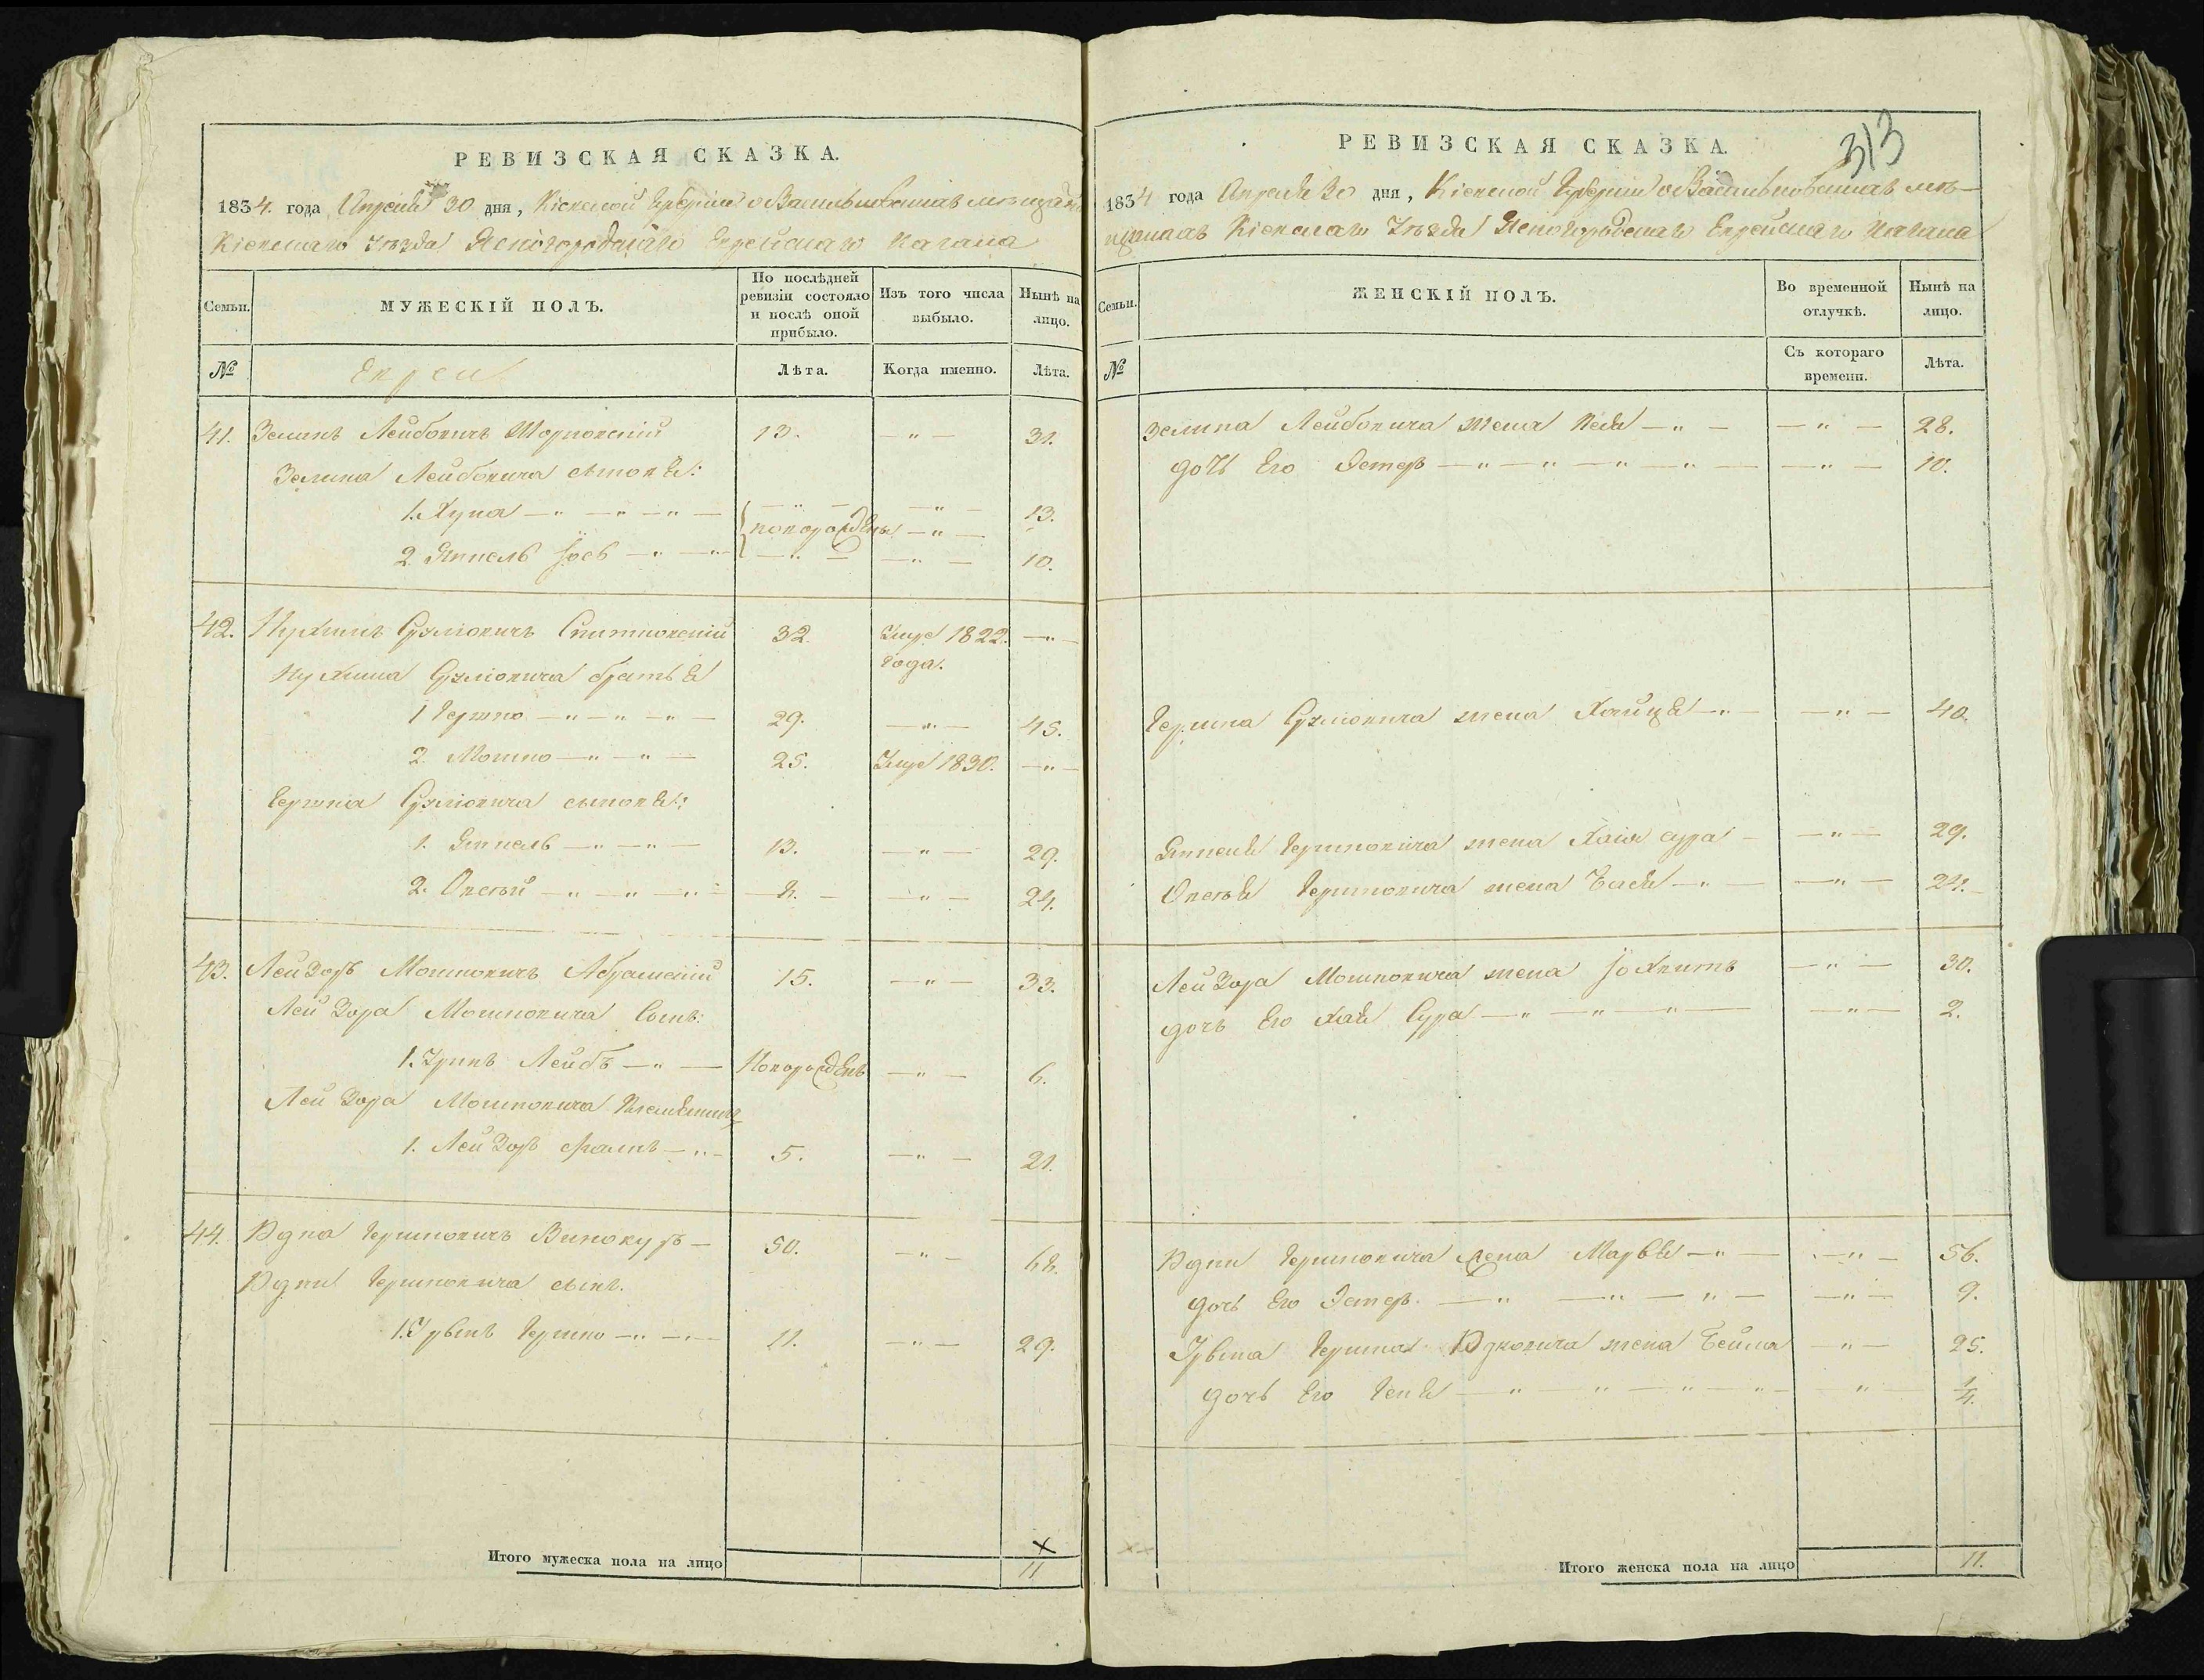 РЕВИЗСКАЯ СКАЗКА.
1834. года Апреля 30 дня, Кіевской Губерніи о Васильковскихъ мѣщанах
Кіевскаго Уѣзда Ясногородскаго Еврейскаго Кагала
Семьи.
МУЖЕСКІЙ ПОЛЪ.
По послѣдней ревизіи состояло и послѣ оной прибыло.
Изъ того числа выбыло.
Нынѣ на лицо.
№
Евреи
Лѣта.
Когда именно.
Лѣта.
41. Зеликъ Лейбовичъ 13. —"— 31.
Зелика Лейбовича сыновья:
1. —"—"—"— —"— —"— 13.
новорождены —"—
2 Янкель Іосъ —"—"— —"— —"— 10.
42. Нухимъ Сруліовичъ 32. Умре 1822. —"—
года.
Нухима Сруліовича братья
1 Гершко —"—"—"— 29. —"— 45.
2. Мошко —"—"— 25. Умре 1830. —"—
Гершка Сруліовича сыновья:
1. Янкель —"—"— 13. —"— 29.
2. Овсѣй —"—"—"— 8. —"— 24.
43. Лейзоръ Мошковичъ Абрамскій 15. —"— 33.
Лейзора Мошковича Сынъ:
1. Лейбъ —"— Новорожденъ —"— 6.
Лейзора Мошковича Племянникъ
1. Лейзоръ —"— 5. —"— 21.
44. Юдка Гершковичъ Винокуръ — 50. —"— 68.
Юдки Гершковича сынъ.
1. Гершко —"—"— 11. —"— 29.
Итого мужеска пола на лицо
х
11
РЕВИЗСКАЯ СКАЗКА.
313
1834 года Апреля 30 дня, Кіевской Губерніи о Васильковскихъ мѣ-
щанахъ Кіевскаго Уѣзда Ясногородскаго Еврейскаго Кагала
Семьи.
ЖЕНСКІЙ ПОЛЪ.
Во временной отлучкѣ.
Нынѣ на лицо.
№
Съ котораго времени.
Лѣта.
Зелика Лейбовича жена —"— —"— 28.
дочь Его Эстеръ —"—"—"—"— —"— 10.
Гершка Сруліовича жена Хайця —"— —"— 40.
Янкеля Гершковича жена Хаія сура — —"— 29.
Овсѣя Гершковича жена Бася —"— —"— 24.
Лейзора Мошковича жена —"— 30.
дочь Его Хая Сура —"—"—"— —"— 2.
Юдки Гершковича жена Марья —"— —"— 56.
дочь Его Эстеръ. —"—"—"— —"— 9.
Гершка Юдковича жена Бейла —"— 25.
дочь Его Геня —"—"—"—"— " 1/4.
Итого женска пола на лицо
11.